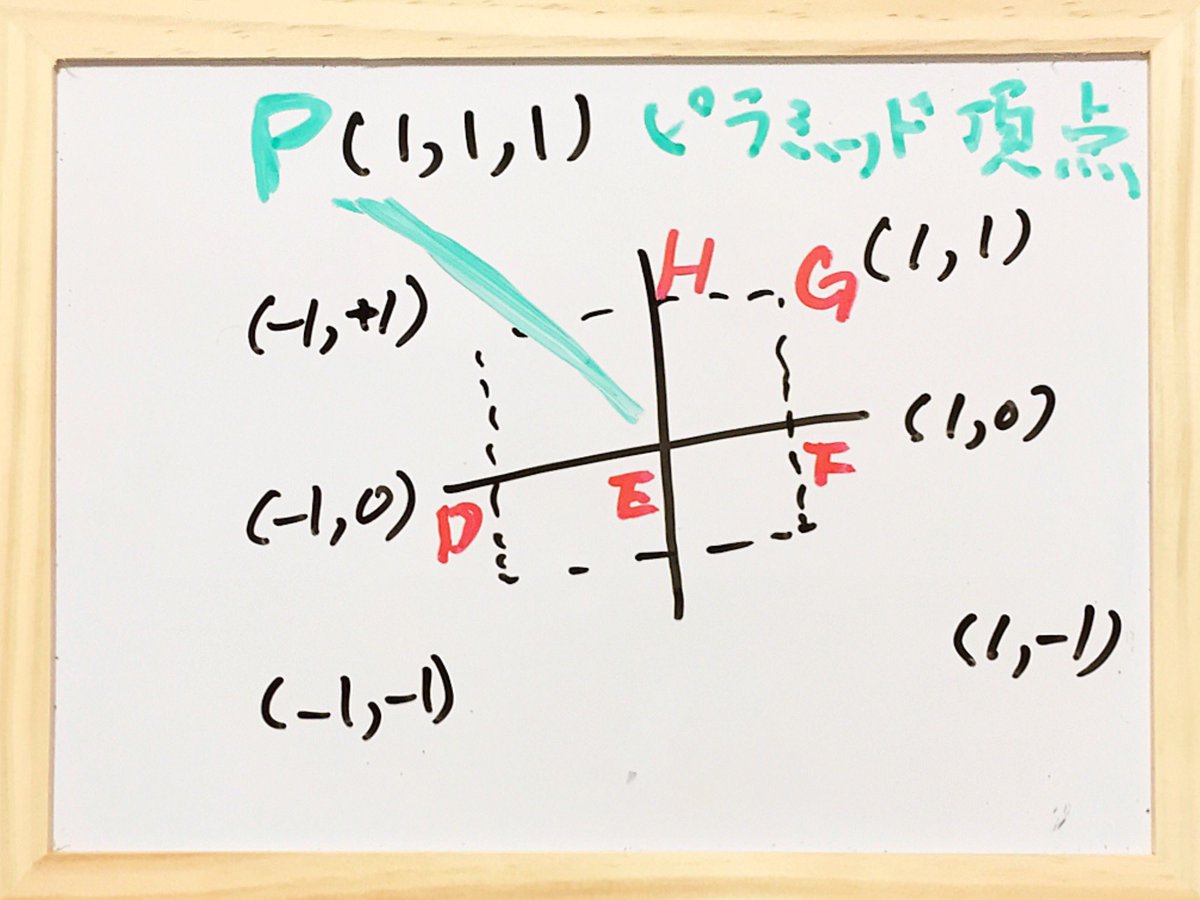 P(1,1,1) ピラミッド頂点
H G (1,1)
(-1,+1)
(1,0)
(-1,0) D E F
(1,-1)
(-1,-1)